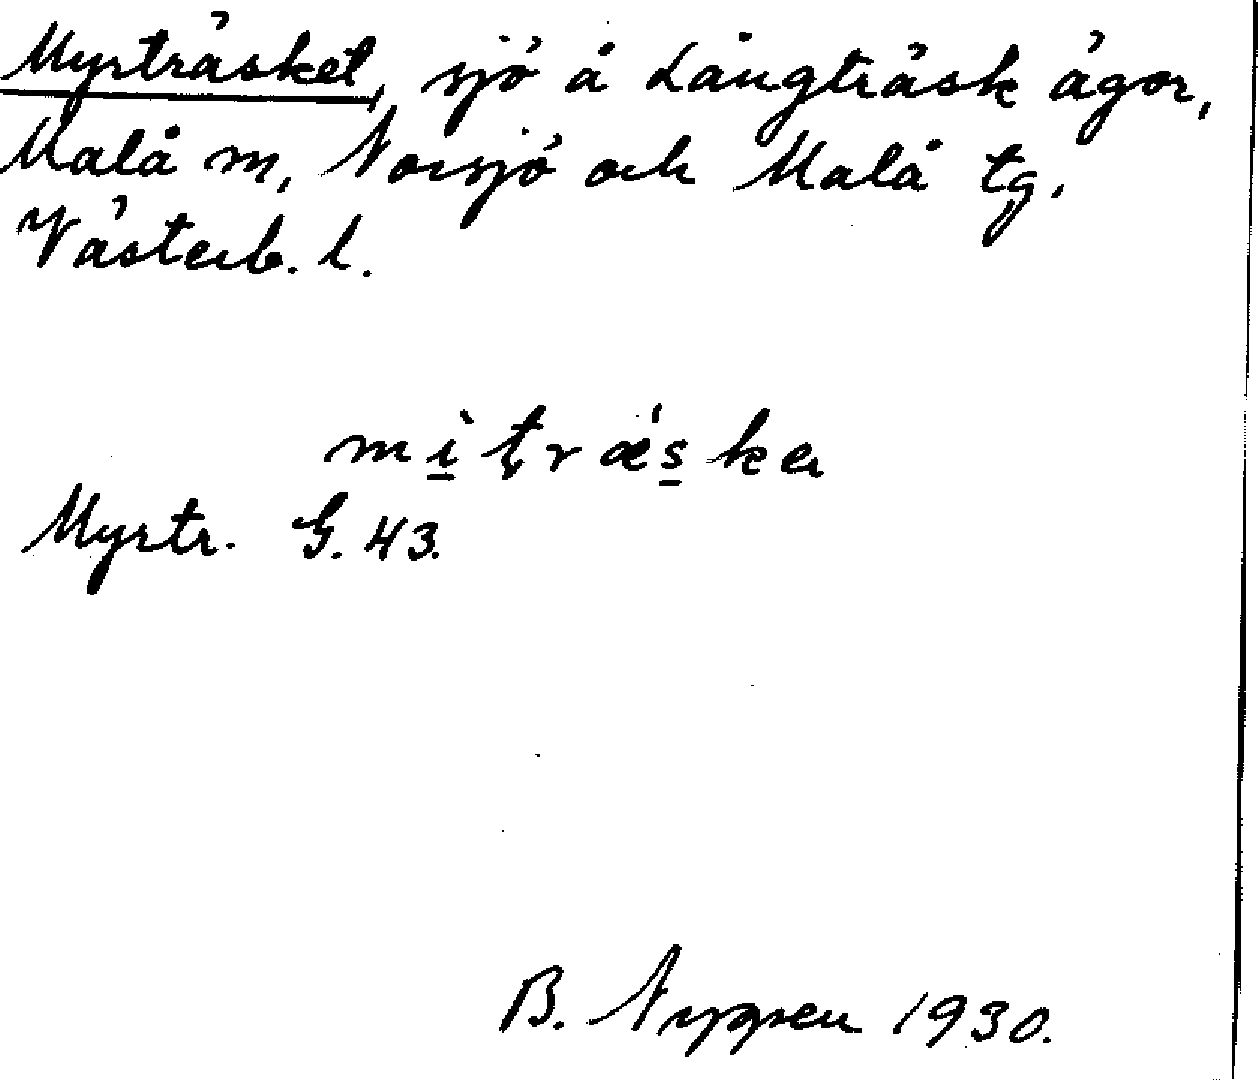 Myrträsket, sjö å Långträsk ägor,
Malå sn, Norsjö och Malå tg.
Västerb. l.
mì̱ţrǽs̱ka
Myrtr. G. 43.
B. 1930.